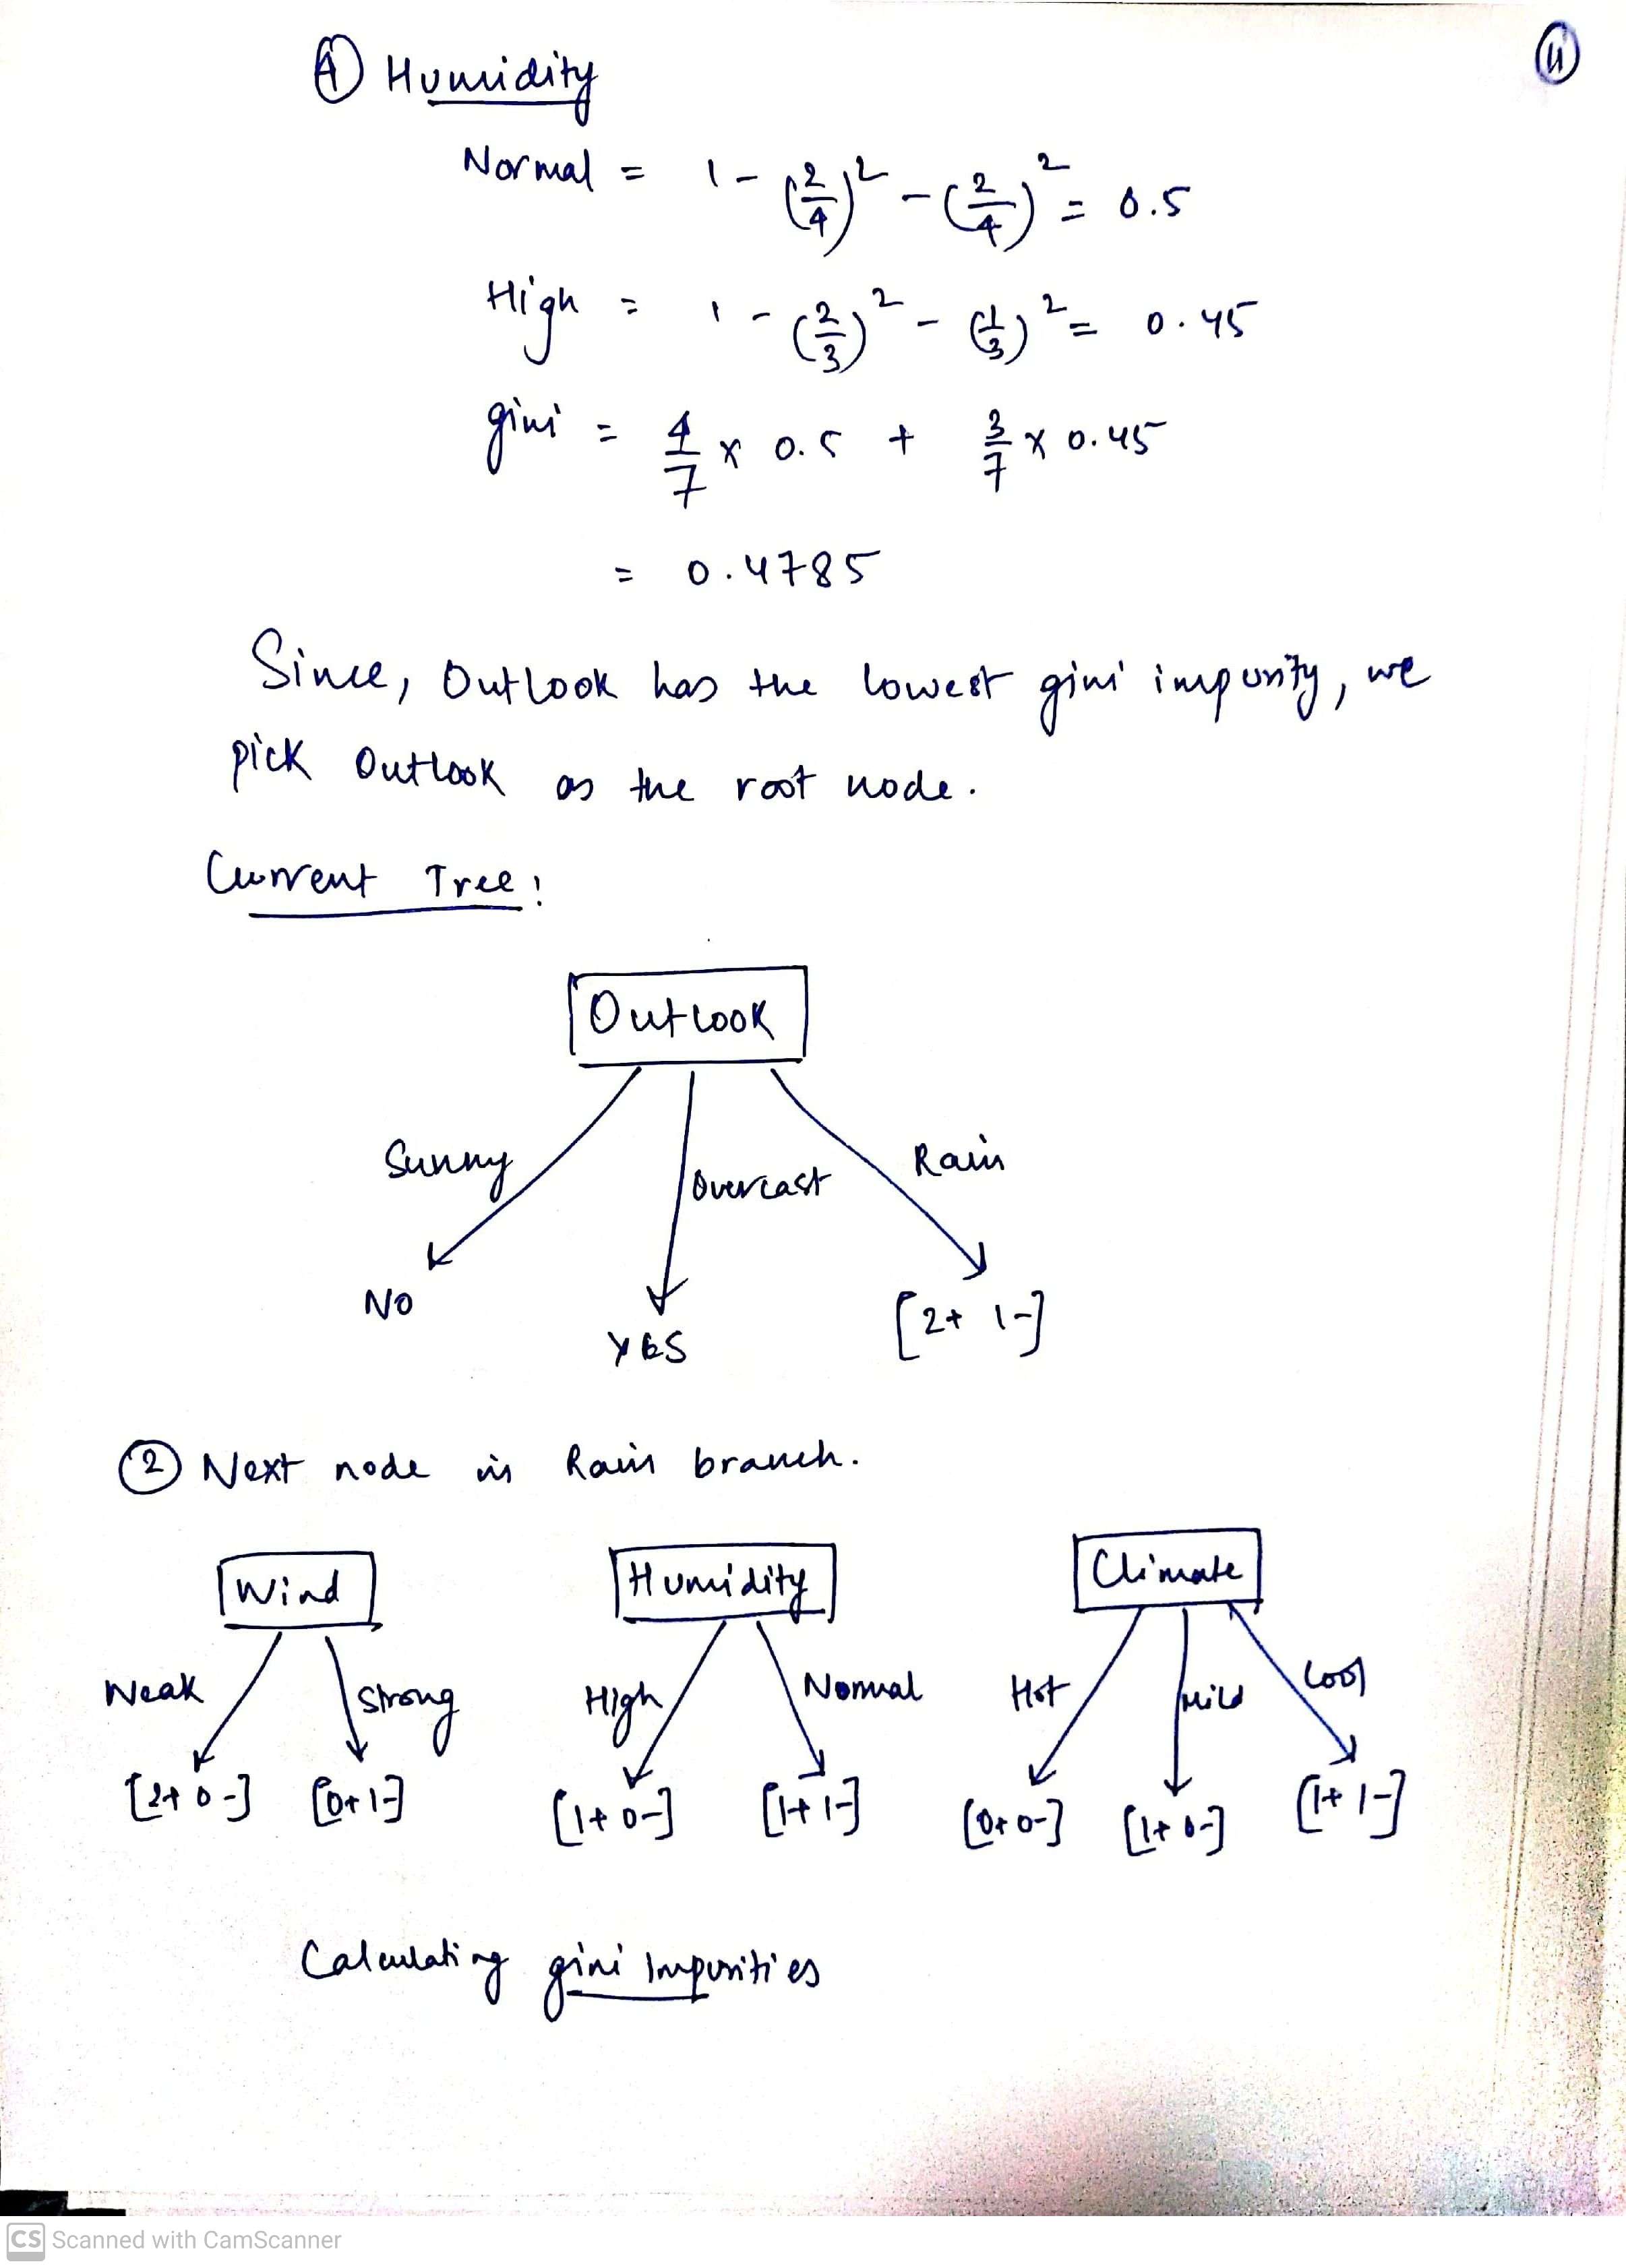 ④ Humidity
④
Normal = 1 - (2/4)² - (2/4)² = 0.5
High = 1 - (2/3)² - (1/3)² = 0.45
gini = 4/7 x 0.5 + 3/7 x 0.45
= 0.4785
Since, Outlook has the lowest gini impurity, we
pick Outlook as the root node.
Current Tree:
Outlook
Sunny Overcast Rain
NO YES [2+ 1-]
② Next node in Rain branch.
Wind Humidity Climate
Weak Strong High Normal Hot Mild Cool
[2+ 0-] [0+ 1-] [1+ 0-] [1+ 1-] [0+ 0-] [1+ 0-] [1+ 1-]
Calculating gini impurities
CS Scanned with CamScanner